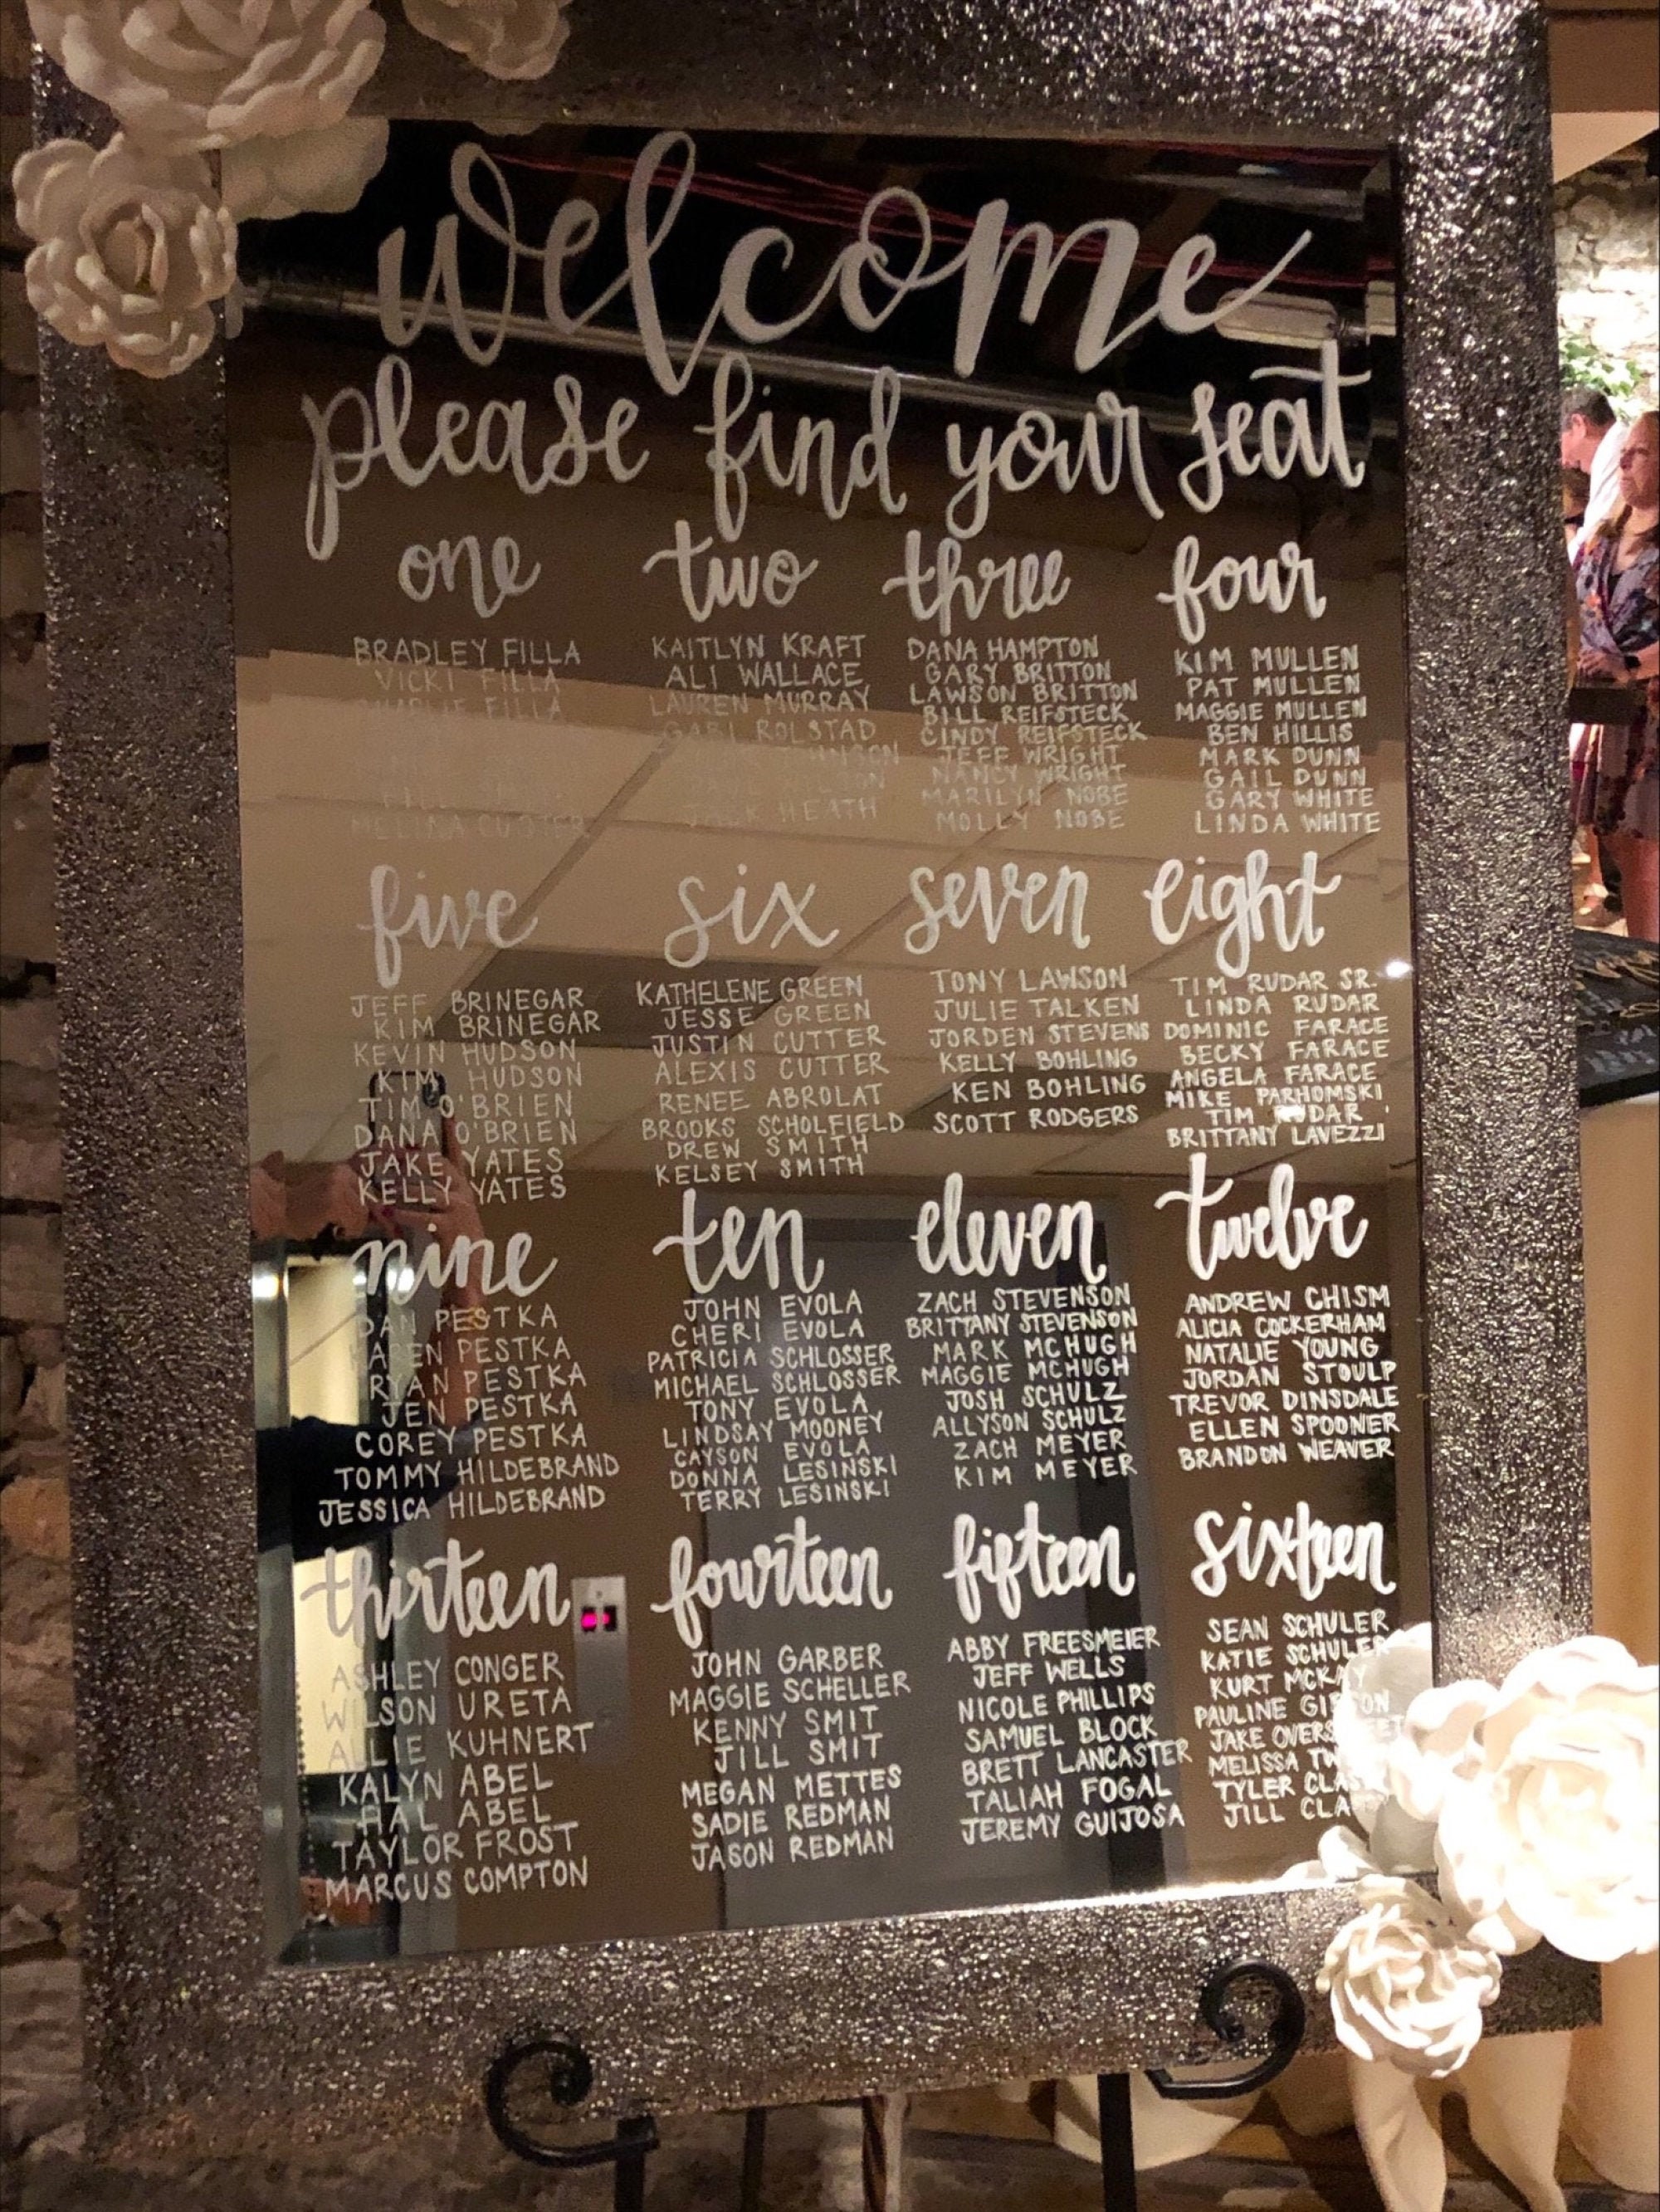 welcome
please find your seat
one
BRADLEY FILLA
VICKI FILLA
FILLA
MELINA CUSTER
two
KAITLYN KRAFT
ALI WALLACE
LAUREN MURRAY
GABI ROLSTAD
JOHNSON
HEATH
three
DANA HAMPTON
GARY BRITTON
LAWSON BRITTON
BILL REIFSTECK
CINDY REIFSTECK
JEFF WRIGHT
NANCY WRIGHT
MARILYN NOBE
MOLLY NOBE
four
KIM MULLEN
PAT MULLEN
MAGGIE MULLEN
BEN HILLIS
MARK DUNN
GAIL DUNN
GARY WHITE
LINDA WHITE
five
JEFF BRINEGAR
KIM BRINEGAR
KEVIN HUDSON
KIM HUDSON
TIM O'BRIEN
DANA O'BRIEN
JAKE YATES
KELLY YATES
six
KATHELENE GREEN
JESSE GREEN
JUSTIN CUTTER
ALEXIS CUTTER
RENEE ABROLAT
BROOKS SCHOLFIELD
DREW SMITH
KELSEY SMITH
seven
TONY LAWSON
JULIE TALKEN
JORDEN STEVENS
KELLY BOHLING
KEN BOHLING
SCOTT RODGERS
eight
TIM RUDAR SR.
LINDA RUDAR
DOMINIC FARACE
BECKY FARACE
ANGELA FARACE
MIKE PARHOMSKI
TIM RUDAR
BRITTANY LAVEZZI
nine
DAN PESTKA
KAREN PESTKA
RYAN PESTKA
JEN PESTKA
COREY PESTKA
TOMMY HILDEBRAND
JESSICA HILDEBRAND
ten
JOHN EVOLA
CHERI EVOLA
PATRICIA SCHLOSSER
MICHAEL SCHLOSSER
TONY EVOLA
LINDSAY MOONEY
CAYSON EVOLA
DONNA LESINSKI
TERRY LESINSKI
eleven
ZACH STEVENSON
BRITTANY STEVENSON
MARK MCHUGH
MAGGIE MCHUGH
JOSH SCHULZ
ALLYSON SCHULZ
ZACH MEYER
KIM MEYER
twelve
ANDREW CHISM
ALICIA COCKERHAM
NATALIE YOUNG
JORDAN STOULP
TREVOR DINSDALE
ELLEN SPOONER
BRANDON WEAVER
thirteen
ASHLEY CONGER
WILSON URETA
ALLIE KUHNERT
KALYN ABEL
HAL ABEL
TAYLOR FROST
MARCUS COMPTON
fourteen
JOHN GARBER
MAGGIE SCHELLER
KENNY SMIT
JILL SMIT
MEGAN METTES
SADIE REDMAN
JASON REDMAN
fifteen
ABBY FREESMEIER
JEFF WELLS
NICOLE PHILLIPS
SAMUEL BLOCK
BRETT LANCASTER
TALIAH FOGAL
JEREMY GUIJOSA
sixteen
SEAN SCHULER
KATIE SCHULER
KURT MCKAY
PAULINE GIBSON
JAKE
MELISSA
TYLER
JILL